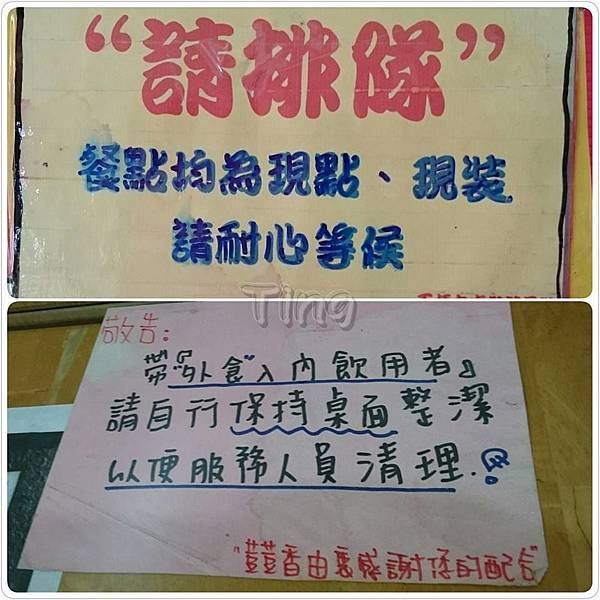 “請排隊”
餐點均為現點、現裝
請耐心等候
Ting
敬告:
帶“外食”入內飲用者』
請自行保持桌面整潔
以便服務人員清理.
"荳荳香由衷感謝您的配合"